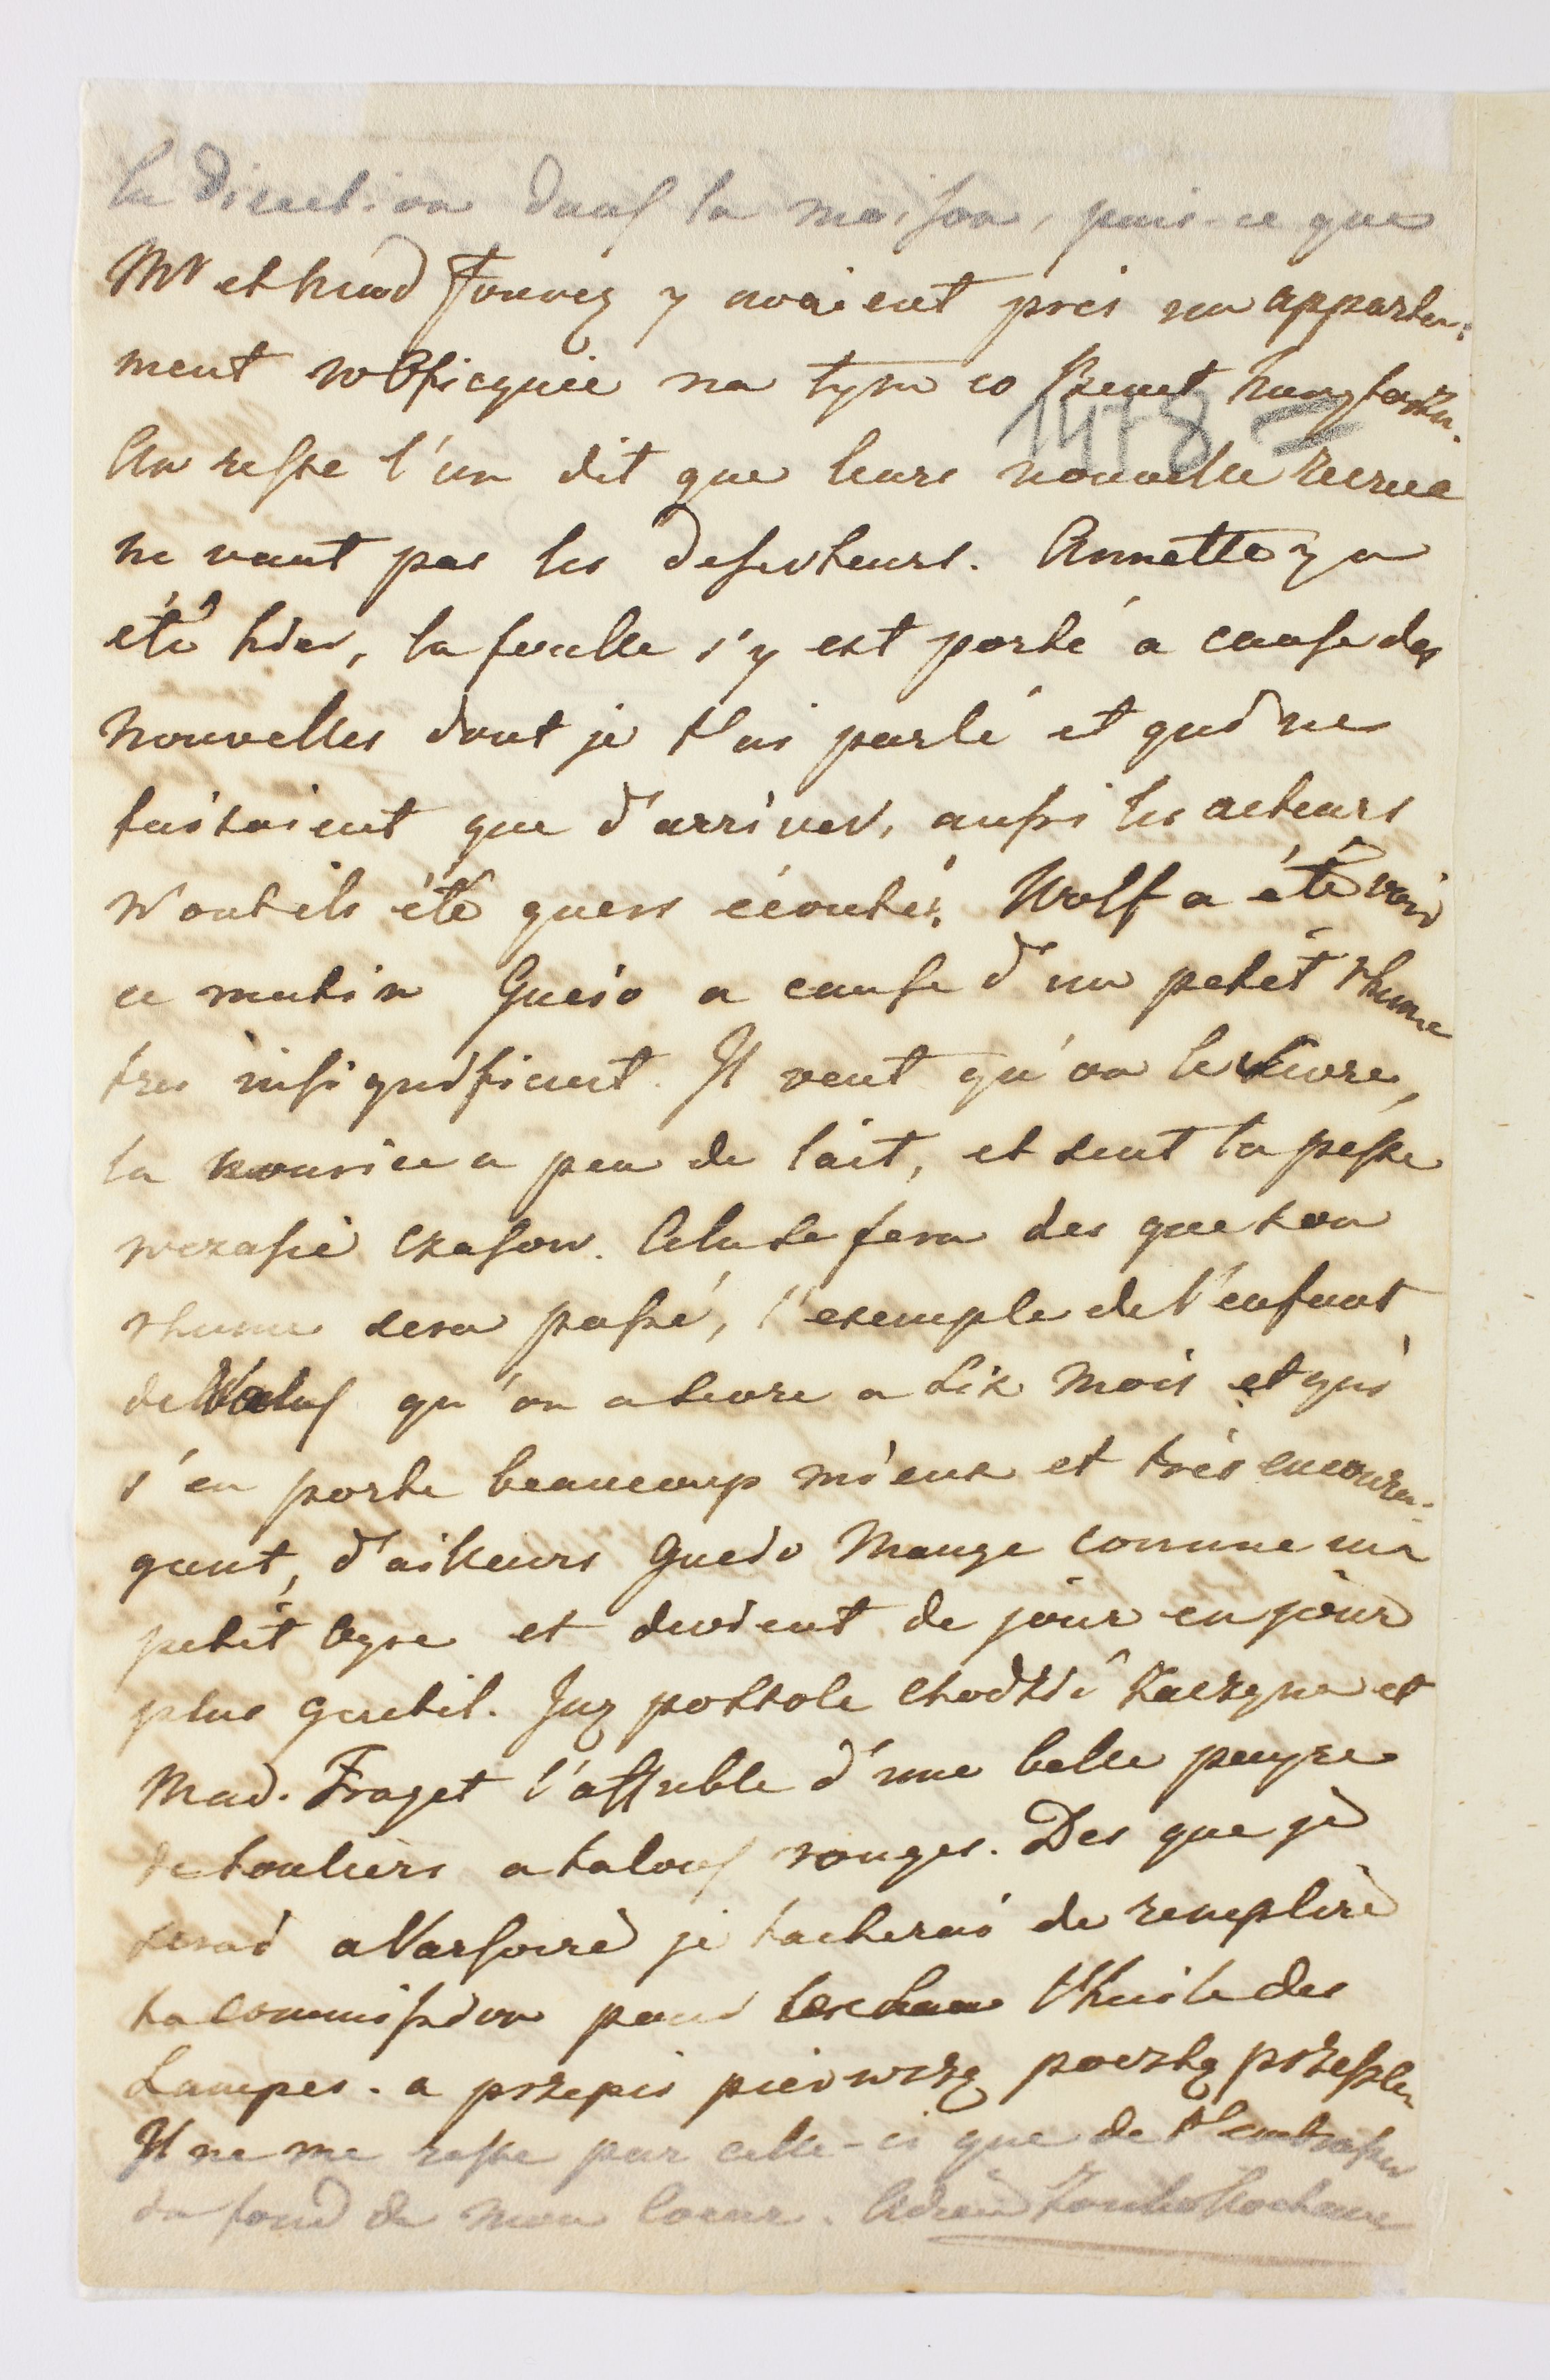 la direction dans la maison, puis-ce que
Mr et Mad Fourez y avaient pris un apparte:
ment w Oficynie na tym co Benet
1478 =
Au reste l'on dit que leurs nouvelle recrue
ne vaut pas les deserteurs. Annette y a
été hier, la foulle s'y est porté a cause des
nouvelles dont je t'ai parlé et qui ne
faisaient que d'arriver, aussi les acteurs
n'ont ils été guers écoutés. Wolf a été voir
ce matin Guido a cause d'un petit rhume
tres insignificant. Il veut qu'on le sevre,
la nourice a peu de lait, et sent la peste
wczasie czasow. Cela se fera des que son
rhume sera passé, l'exemple de l'enfant
de qu'on a sevre a six mois et qui
s'en porte beaucoup mieux et très encoura-
geant, d'ailleurs Guido mange comme un
petit Ogre et devient de jour en jour
plus gentil. Juz po stole chodzić zaczyna et
Mad. Fraget l'affuble d'une belle payre
de souliers a talons rouges. Des que je
serai a Varsovie je tacherai de remplire
ta commission pour l'huile des
Lampes. a przepis pierwszą pocztą przeszlę
Il ne me reste par celle-ci que de t'embrasser
du fond de mon Coeur.